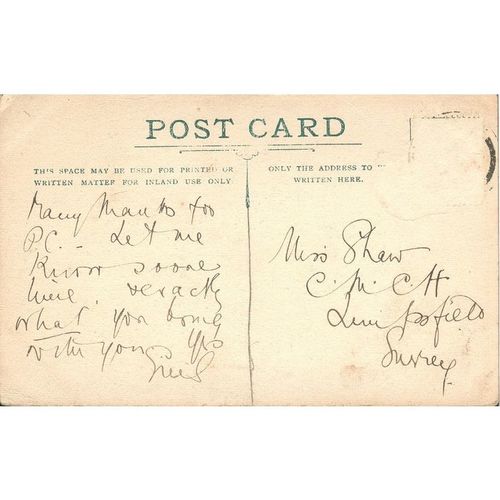 POST CARD
THIS SPACE MAY BE USED FOR PRINTED OR
WRITTEN MATTER FOR INLAND USE ONLY.
ONLY THE ADDRESS TO
WRITTEN HERE.
Many thanks for
P.C. Let me
know some
time, exactly
what you
with yours Yrs
Miss Shaw
C. M. C. H
Limpsfield
Surrey